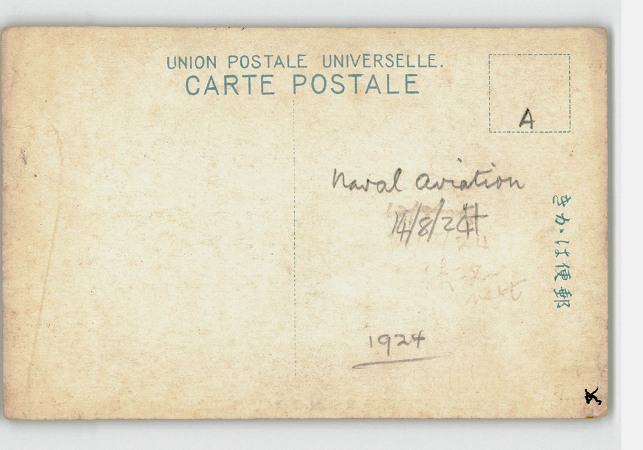 UNION POSTALE UNIVERSELLE.
CARTE POSTALE
A
Naval Aviation
14/8/24
1924
きかは便郵